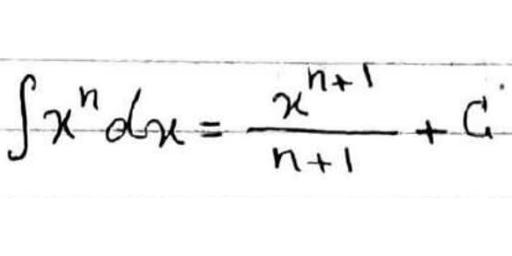 ∫xⁿdx = xⁿ⁺¹/n+1 + C